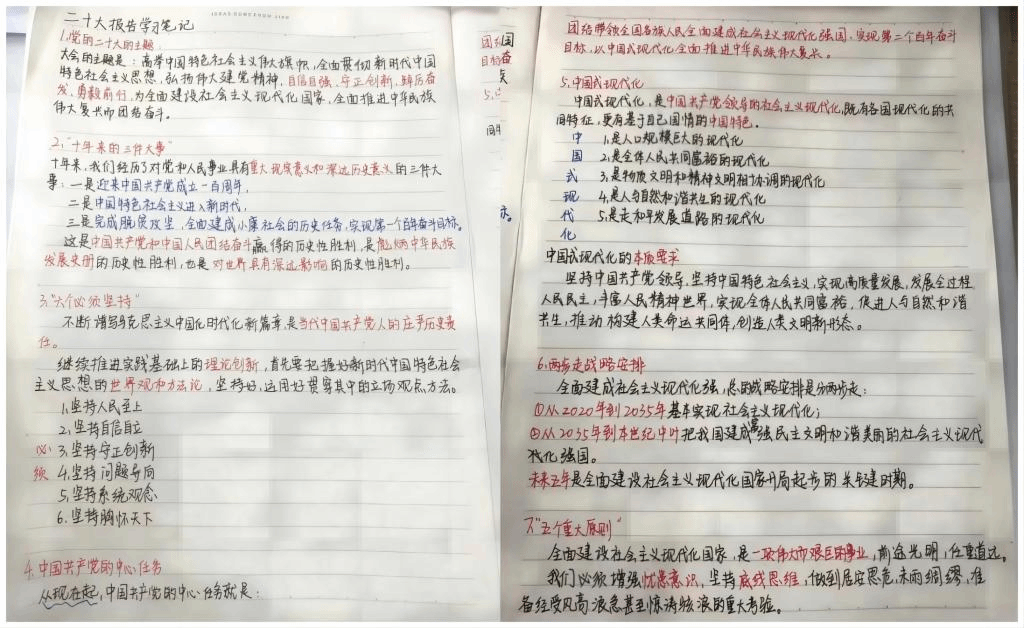 二十大报告学习笔记
1.党的二十大的主题：
大会的主题是：高举中国特色社会主义伟大旗帜，全面贯彻新时代中国
特色社会主义思想，弘扬伟大建党精神，自信自强、守正创新、踔厉奋
发、勇毅前行，为全面建设社会主义现代化国家，全面推进中华民族
伟大复兴而团结奋斗。
2."十年来的三件大事"
十年来，我们经历了对党和人民事业具有重大现实意义和深远历史意义的三件大
事：一是迎来中国共产党成立一百周年，
二是中国特色社会主义进入新时代，
三是完成脱贫攻坚，全面建成小康社会的历史任务，实现第一个百年奋斗目标。
这是中国共产党和中国人民团结奋斗赢得的历史性胜利，是彪炳中华民族
发展史册的历史性胜利，也是对世界具有深远影响的历史性胜利。
3."六个必须坚持"
不断谱写马克思主义中国化时代化新篇章，是当代中国共产党人的庄严历史责
任。
继续推进实践基础上的理论创新，首先要把握好新时代中国特色社会
主义思想的世界观和方法论，坚持好，运用好贯穿其中的立场观点方法。
1.坚持人民至上
2.坚持自信自立
必 3.坚持守正创新
须 4.坚持问题导向
5.坚持系统观念
6.坚持胸怀天下
4.中国共产党的中心任务
从现在起，中国共产党的中心任务就是：
团结国
目标奋
族
5.中
同特
标。
团结带领全国各族人民全面建成社会主义现代化强国，实现第二个百年奋斗
目标，以中国式现代化全面推进中华民族伟大复兴。
5.中国式现代化
中国式现代化，是中国共产党领导的社会主义现代化，既有各国现代化的共
同特征，更有基于自己国情的中国特色。
中 1.是人口规模巨大的现代化
国 2.是全体人民共同富裕的现代化
式 3.是物质文明和精神文明相协调的现代化
现 4.是人与自然和谐共生的现代化
代 5.是走和平发展道路的现代化
化
中国式现代化的本质要求
坚持中国共产党领导，坚持中国特色社会主义，实现高质量发展，发展全过程
人民民主，丰富人民精神世界，实现全体人民共同富裕，促进人与自然和谐
共生，推动构建人类命运共同体，创造人类文明新形态。
6.两步走战略安排
全面建成社会主义现代化强，总的战略安排是分两步走：
①从2020年到2035年基本实现社会主义现代化；
②从2035年到本世纪中叶把我国建成富强民主文明和谐美丽的社会主义现代
化强国。
未来五年是全面建设社会主义现代化国家开局起步的关键时期。
7."五个重大原则"
全面建设社会主义现代化国家，是一项伟大而艰巨的事业，前途光明，任重道远。
我们必须增强忧患意识，坚持底线思维，做到居安思危，未雨绸缪，准
备经受风高浪急甚至惊涛骇浪的重大考验。